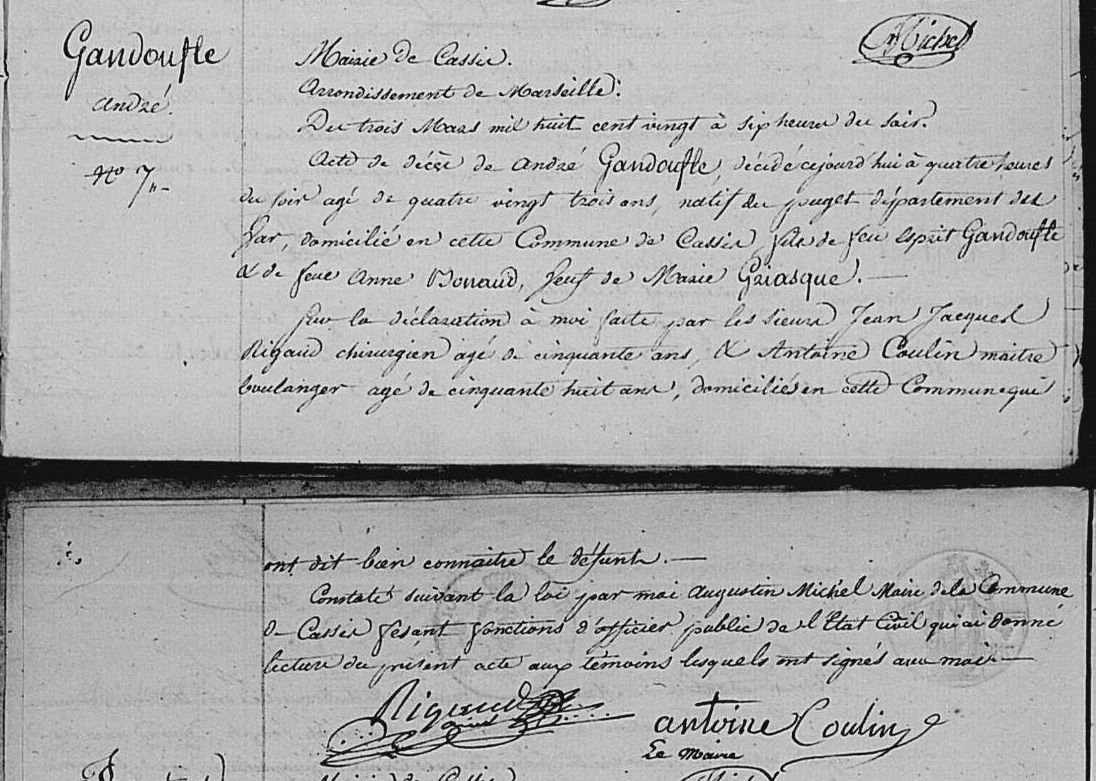 Michel
Gandoufle
André
No 7
Mairie de Cassis.
Arrondissement de Marseille.
Du trois Mars mil huit cent vingt à six heures du soir.
Acte de décès de André Gandoufle, décédé cejourd'hui à quatre heures
du soir agé de quatre vingt trois ans, natif du puget département du
Var, domicilié en cette Commune de Cassis, fils de feu Esprit Gandoufle
& de feue Anne Bonaud, veuf de Marie Griasque. —
Sur la déclaration à moi faite par les sieurs Jean Jacques
Rigaud chirurgien agé de cinquante ans, & Antoine Coulin maitre
boulanger agé de cinquante huit ans, domiciliés en cette Commune qui
ont dit bien connaitre le défunt. —
Constaté suivant la loi par moi Augustin Michel Maire de la Commune
de Cassis fésant fonctions d'officier public de l'Etat Civil qui ai donné
lecture du présent acte aux témoins lesquels ont signés avec moi —
Rigaud
antoine Coulin
Le Maire
Mairie de Cassis